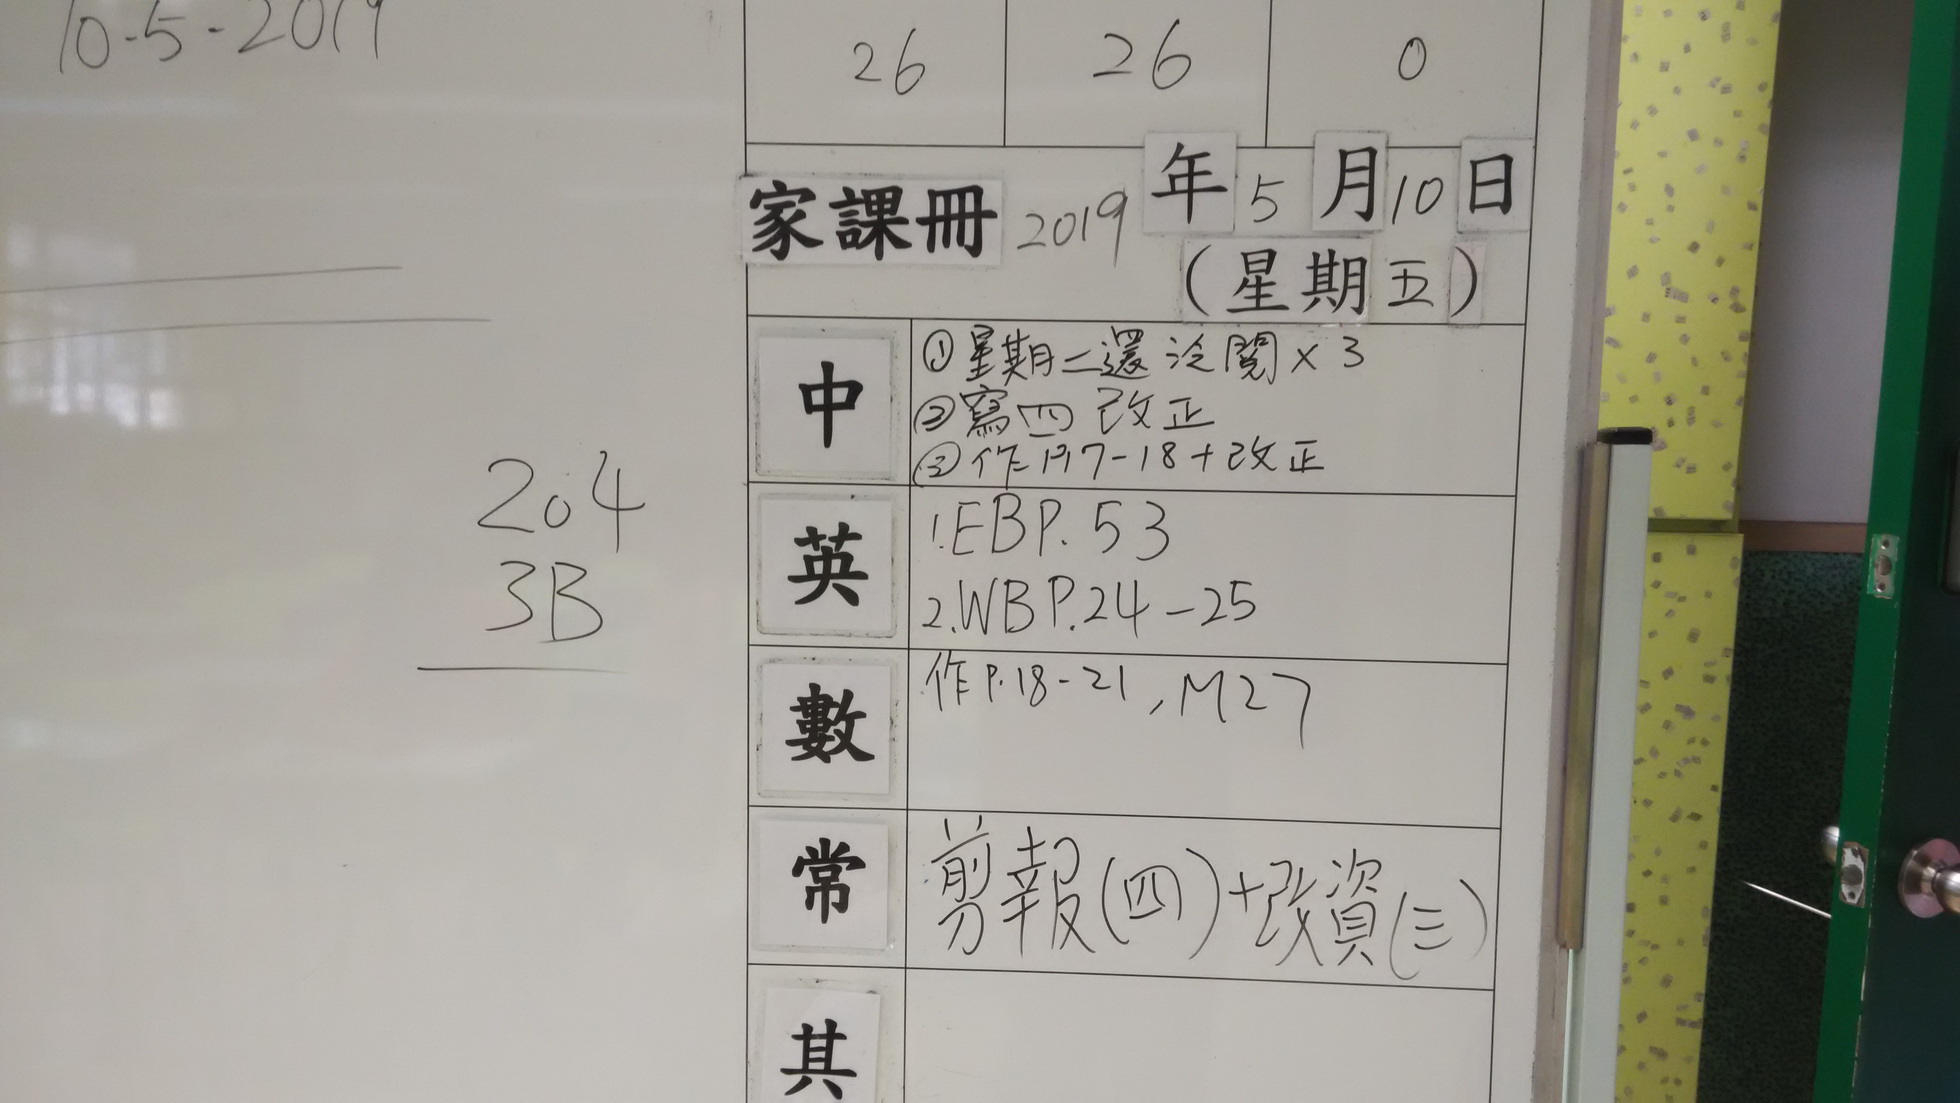 10-5-2019
26 26 0
家課冊 2019 年 5 月 10 日
(星期五)
204
3B
中
①星期二還 泛閱 x 3
②寫四 改正
③作 P.17-18 + 改正
英
1.EBP.53
2.WBP.24-25
數
作P.18-21, M27
常
剪報(四)+改資(三)
其